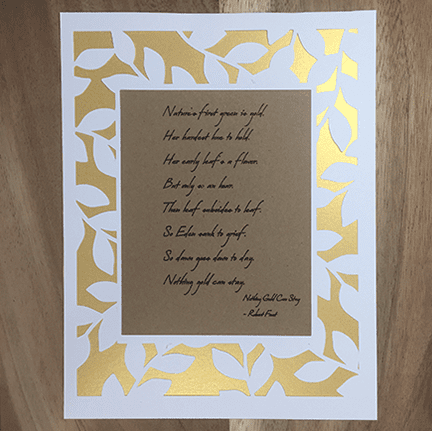 Nature's first green is gold.
Her hardest hue to hold.
Her early leaf's a flower.
But only so an hour.
Then leaf subsides to leaf.
So Eden sank to grief.
So dawn goes down to day.
Nothing gold can stay.
Nothing Gold Can Stay
- Robert Frost